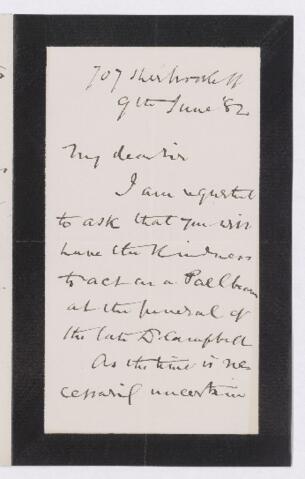 707 Sherbrooke St
9th June '82
My dear Sir
I am requested
to ask that you will
have the Kindness
to act as a Pallbearer
at the funeral of
the late Dr Campbell
As the time is ne
cessarily uncertain